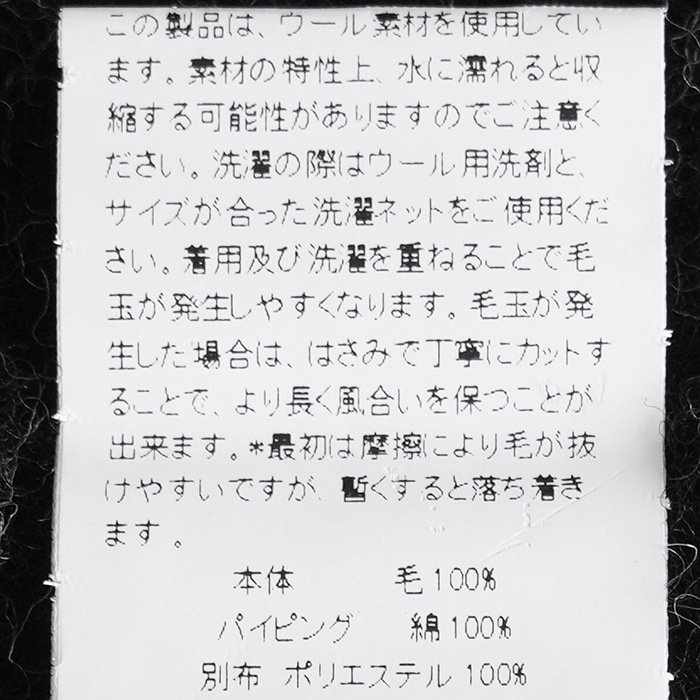 この製品は、ウール素材を使用してい
ます。素材の特性上、水に濡れると収
縮する可能性がありますのでご注意く
ださい。洗濯の際はウール用洗剤と、
サイズが合った洗濯ネットをご使用くだ
さい。着用及び洗濯を重ねることで毛
玉が発生しやすくなります。毛玉が発
生した場合は、はさみで丁寧にカットす
ることで、より長く風合いを保つことが
出来ます。*最初は摩擦により毛が抜
けやすいですが、暫くすると落ち着き
ます。
本体 毛100%
パイピング 綿100%
別布 ポリエステル 100%